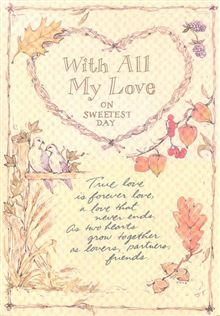 With All
My Love
ON
SWEETEST
DAY
True love
is forever love,
a love that
never ends.
As two hearts
grow together
as lovers, partners,
friends